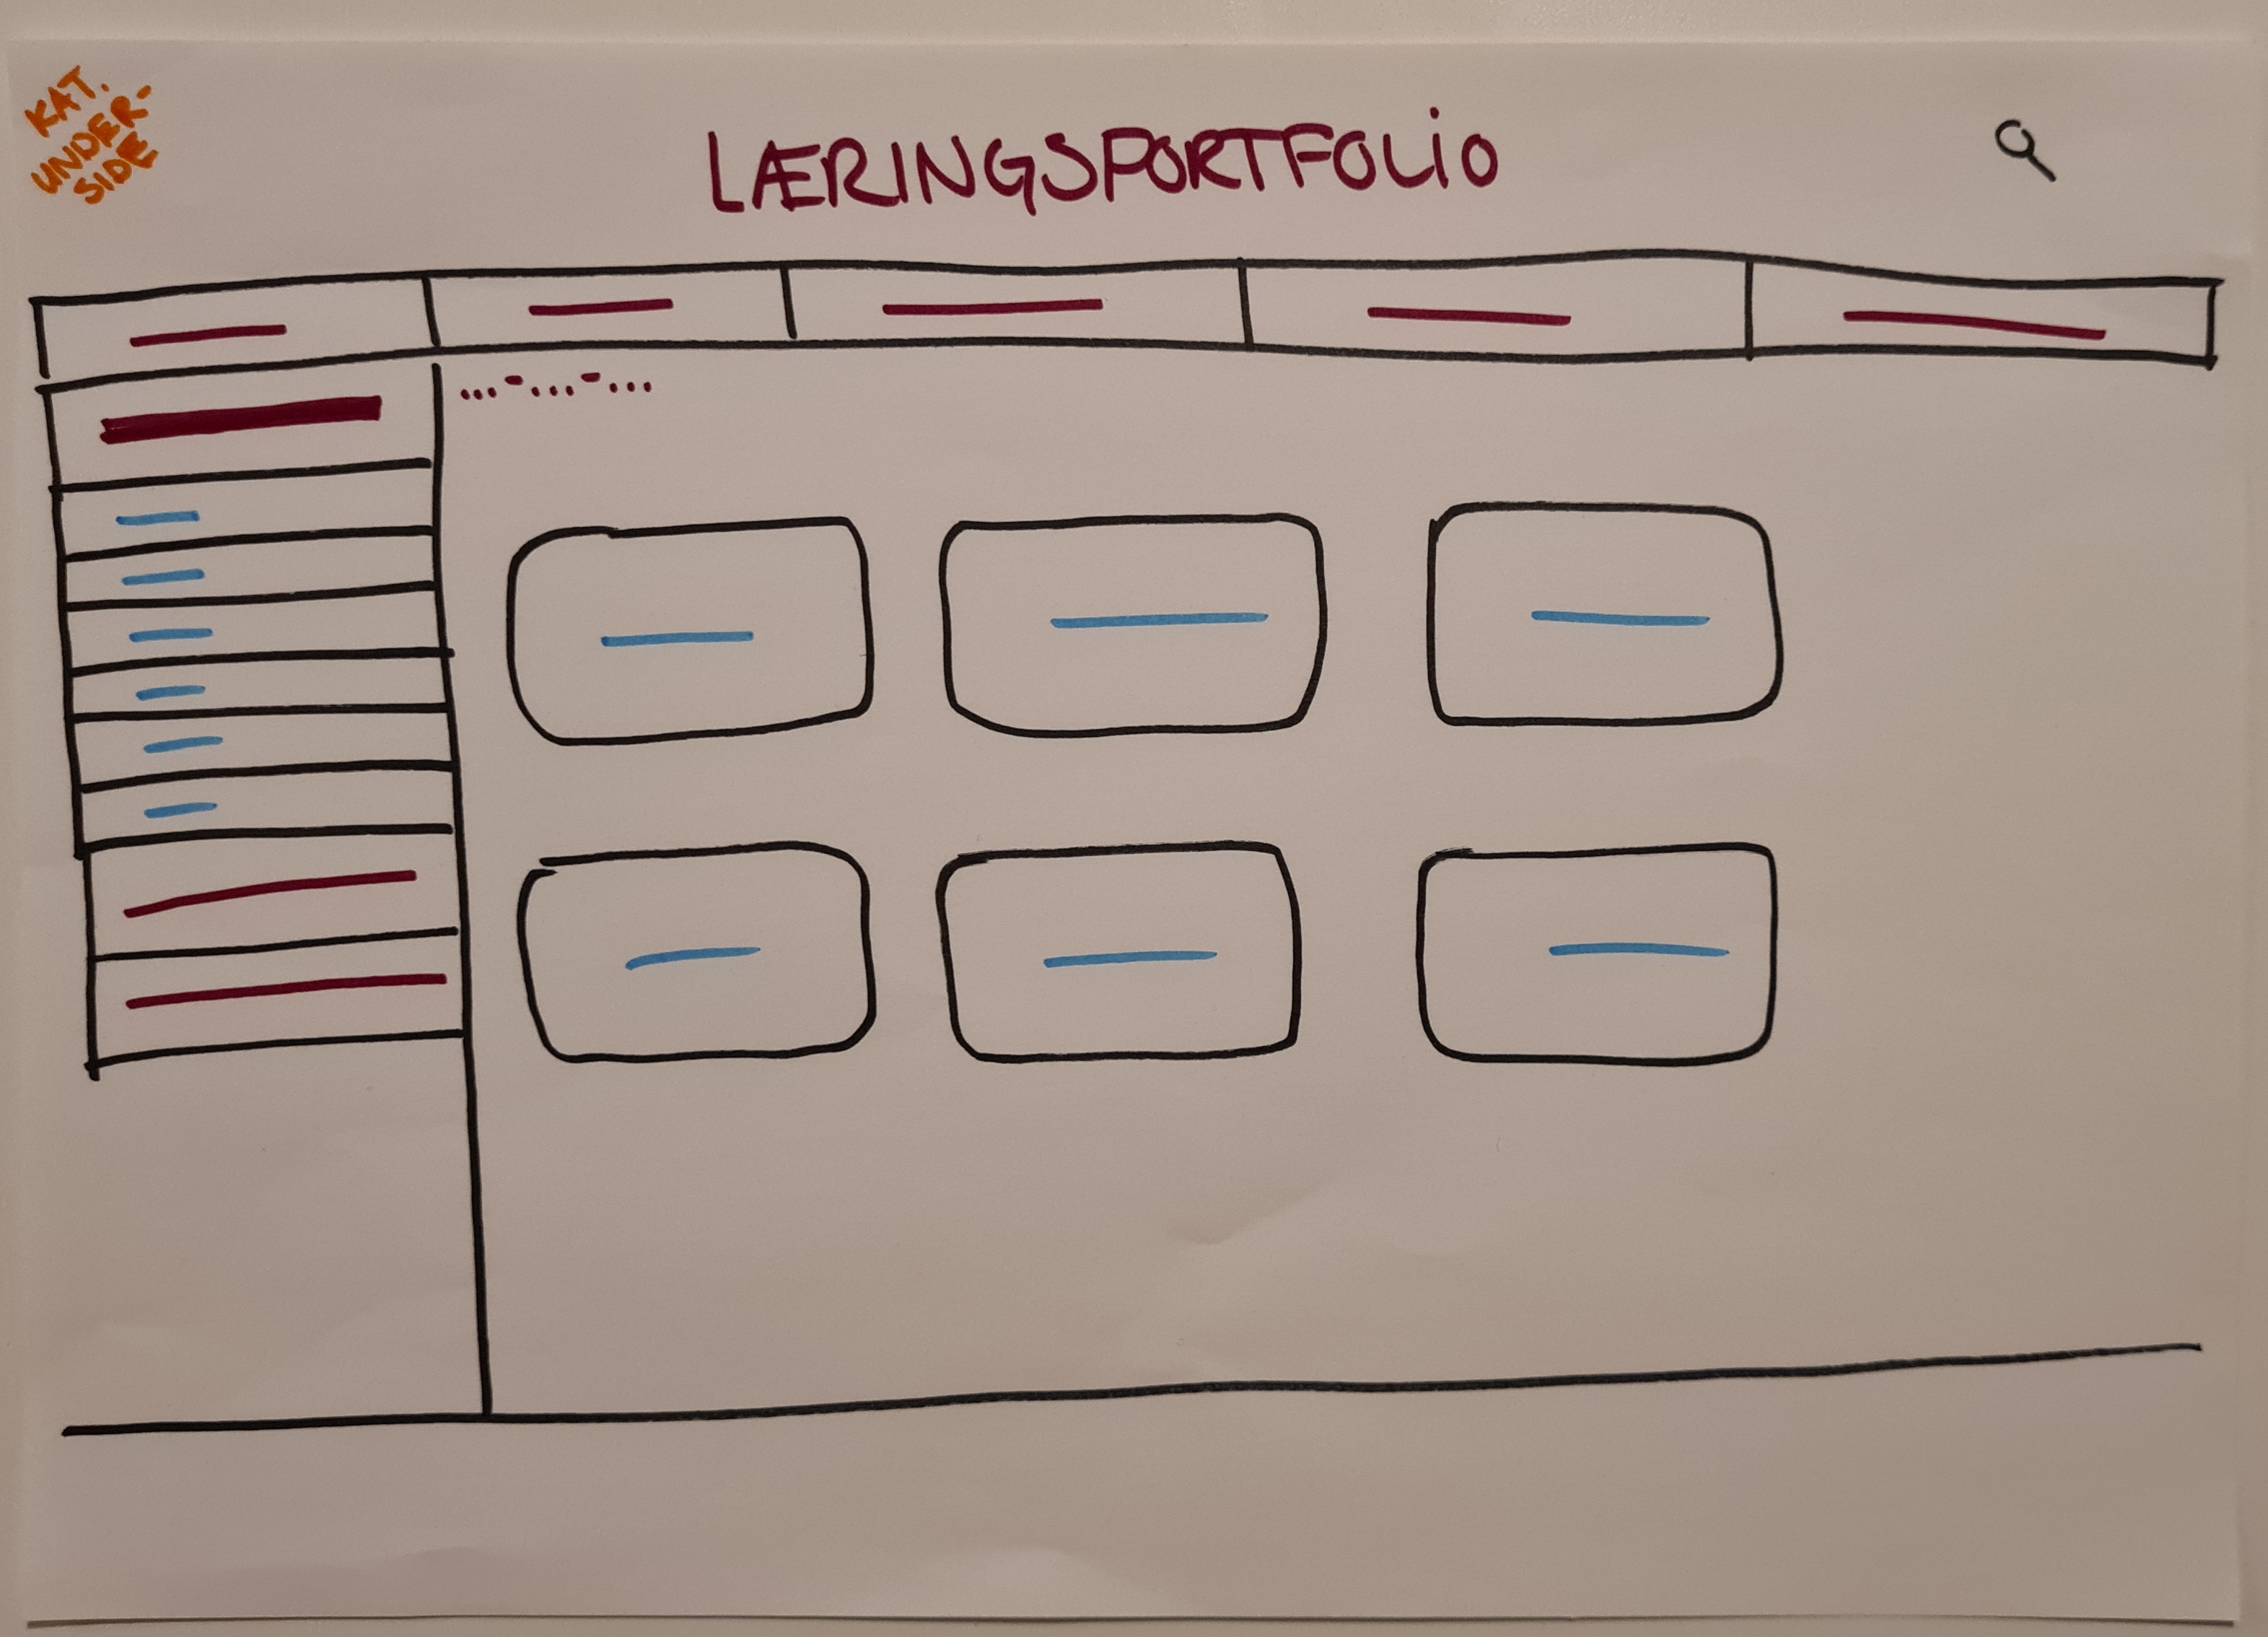 KAT.
UNDER-
SIDE
LÆRINGSPORTFOLIO